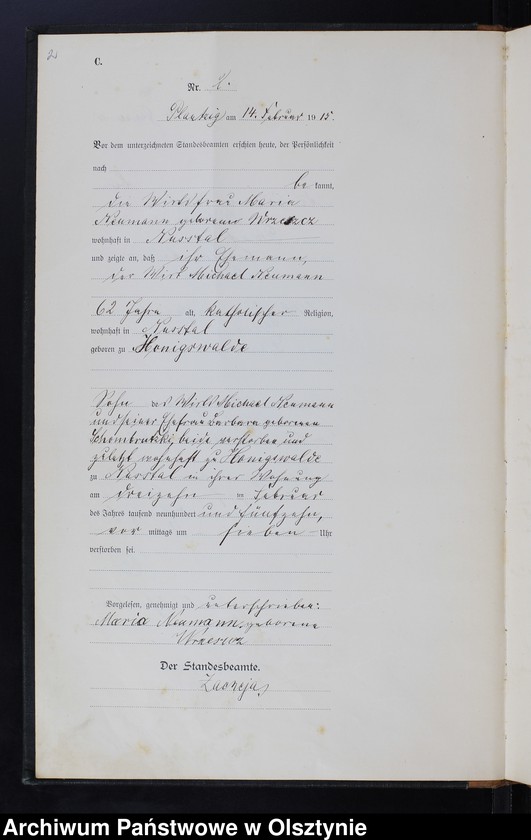 2
C.
Nr. 2.
Plautzig am 14. Februar 1915.
Vor dem unterzeichneten Standesbeamten erschien heute, der Persönlichkeit
nach
be kannt,
die Wirtsfrau Maria
Neumann geborene Wrzeszcz
wohnhaft in Nusstal
und zeigte an, daß ihr Ehemann,
der Wirt Michael Neumann
62 Jahre alt, katholischer Religion,
wohnhaft in Nusstal
geboren zu Honigswalde
Sohn des Wirts Michael Neumann
und seiner Ehefrau Barbara geborenen
beide verstorben und
zuletzt wohnhaft zu Honigswalde
zu Nusstal in ihrer Wohnung
am dreizehn im Februar
des Jahres tausend neunhundert und fünfzehn,
vor mittags um sieben Uhr
verstorben sei.
Vorgelesen, genehmigt und unterschrieben:
Maria Neumann, geborene
Der Standesbeamte.
Archiwum Państwowe w Olsztynie